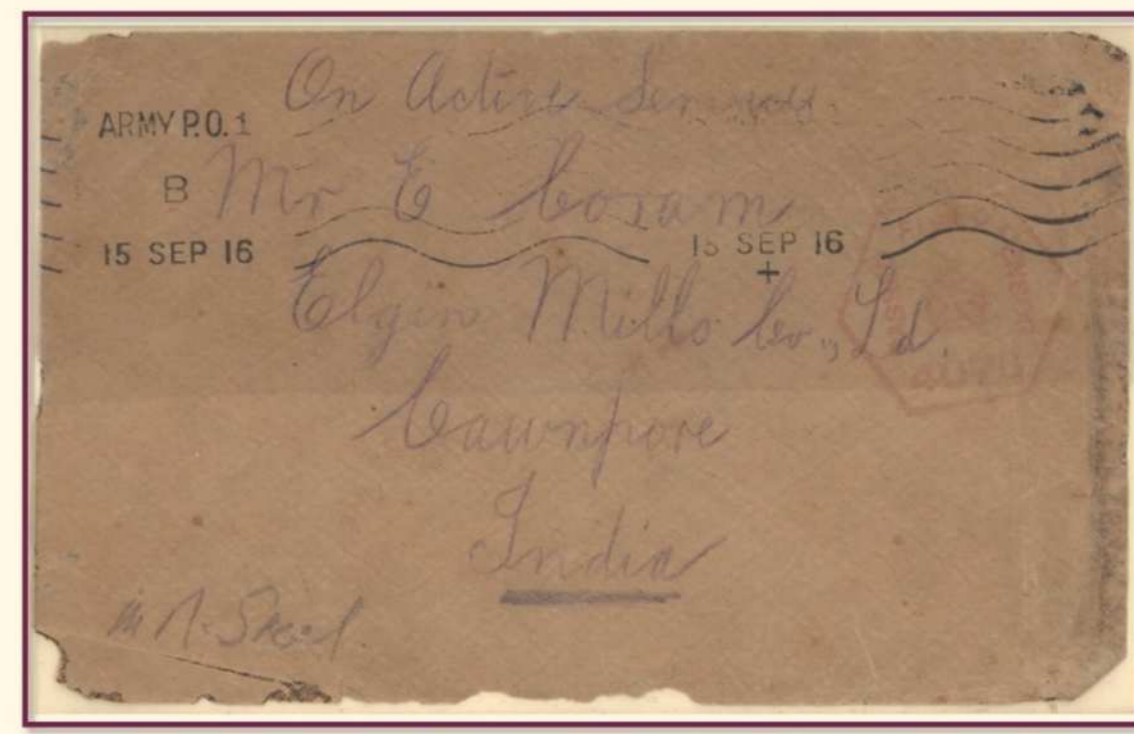 On Active Service
ARMY P.O. 1
B
15 SEP 16
15 SEP 16
Mr E Coram
Elgin Mills Co., Ld.
Cawnpore
India